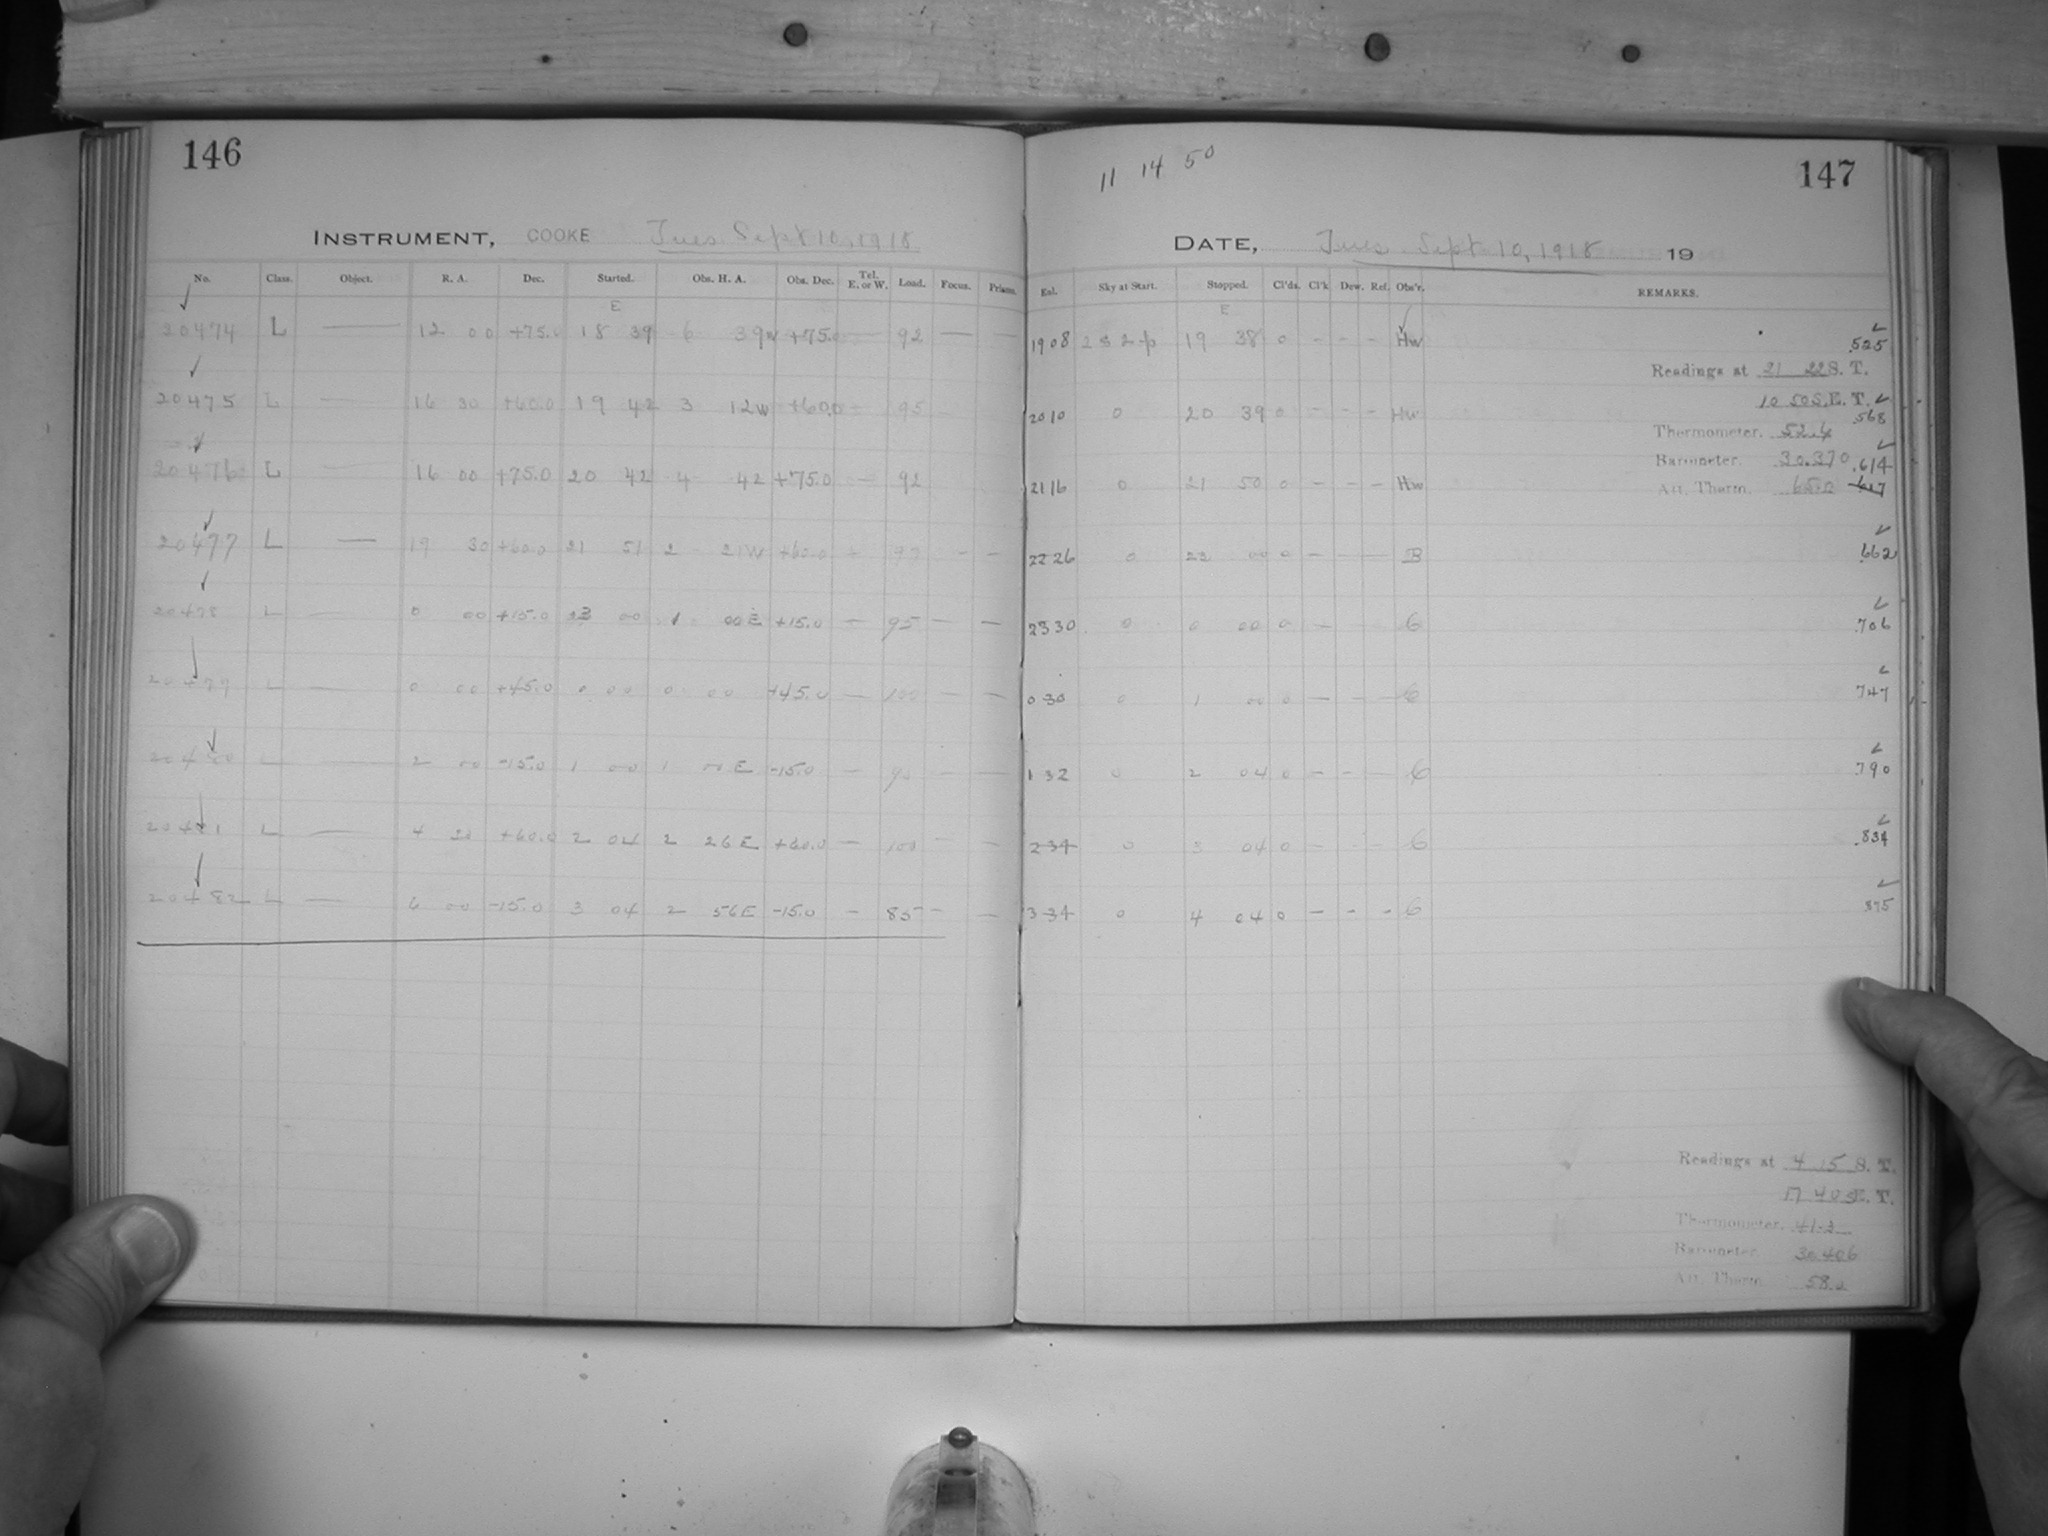 146
INSTRUMENT, COOKE Tues. Sept 10, 1918
No. Class. Object. R. A. Dec. Started. Obs. H. A. Obs. Dec. Tel. E. or W. Load. Focus. Prisms.
E
20474 L — 12 00 +75.0 18 39 6 39W +75.0 — 92 — —
20475 L — 16 30 +60.0 19 42 3 12W +60.0 — 95 —
20476 L — 16 00 +75.0 20 42 4 42 +75.0 — 92
20477 L — 19 30 +60.0 21 51 2 21W +60.0 — — —
20478 L — 0 00 +15.0 23 00 1 00E +15.0 — 95 — —
20479 L — 0 00 +45.0 0 00 0 00 +45.0 — 100 — —
20480 L — 2 00 -15.0 1 00 1 00E -15.0 — 90 — —
20481 L — 4 30 +60.0 2 04 2 26E +60.0 — 100 — —
20482 L — 6 00 -15.0 3 04 2 56E -15.0 — 85 — —
11 14 50
147
DATE, Tues. Sept 10, 1918 19
Eul. Sky at Start. Stopped. Cl'ds. Cl'k Dew. Ref. Obs'r. REMARKS.
E
1908 2 S 2 p 19 38 0 - - - Hw .525
Readings at 21 22 S. T.
10 50 S.E. T.
2010 0 20 39 0 - - - Hw .568
Thermometer. 52.4
Barometer. 30.370 .614
2116 0 21 50 0 - - - Hw
Att. Therm. 65.0 .617
2226 0 22 00 0 - - - B .662
2330 0 0 00 0 - - 6 .706
0 30 0 1 00 0 - - - 6 .747
1 32 0 2 04 0 - - - 6 .790
2 34 0 3 04 0 - - - 6 .834
3 34 0 4 04 0 - - - 6 .875
Readings at 4 15 S. T.
17 40 S.E. T.
Thermometer. 41.2
Barometer. 30.406
Att. Therm. 58.2